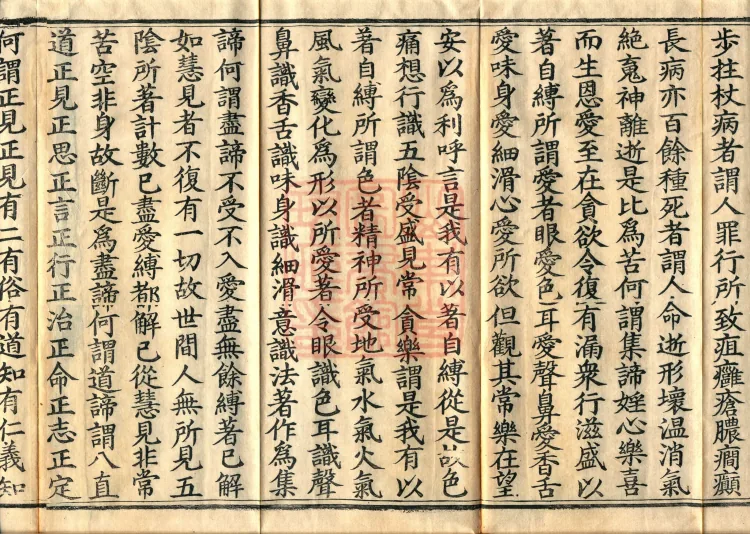 歩拄杖病者謂人罪行所致疽癰瘡膿癎癲
長病亦百餘種死者謂人命逝形壞温消氣
絶䰟神離逝是比爲苦何謂集諦婬心樂喜
而生恩愛至在貪欲令復有漏衆行滋盛以
著自縛所謂愛者眼愛色耳愛聲鼻愛香舌
愛味身愛細滑心愛所欲但觀其常樂在望
安以爲利呼言是我有以著自縛從是故色
痛想行識五陰受盛見常貪樂謂是我有以
著自縛所謂色者精神所受地氣水氣火氣
風氣變化爲形以所愛著令眼識色耳識聲
鼻識香舌識味身識細滑意識法著作爲集
諦何謂盡諦不受不入愛盡無餘縛著已解
如慧見者不復有一切故世間人無所見五
陰所著計數已盡愛縛都解已從慧見非常
苦空非身故斷是爲盡諦何謂道諦謂八直
道正見正思正言正行正治正命正志正定
何謂正見正見有二有俗有道知有仁義知